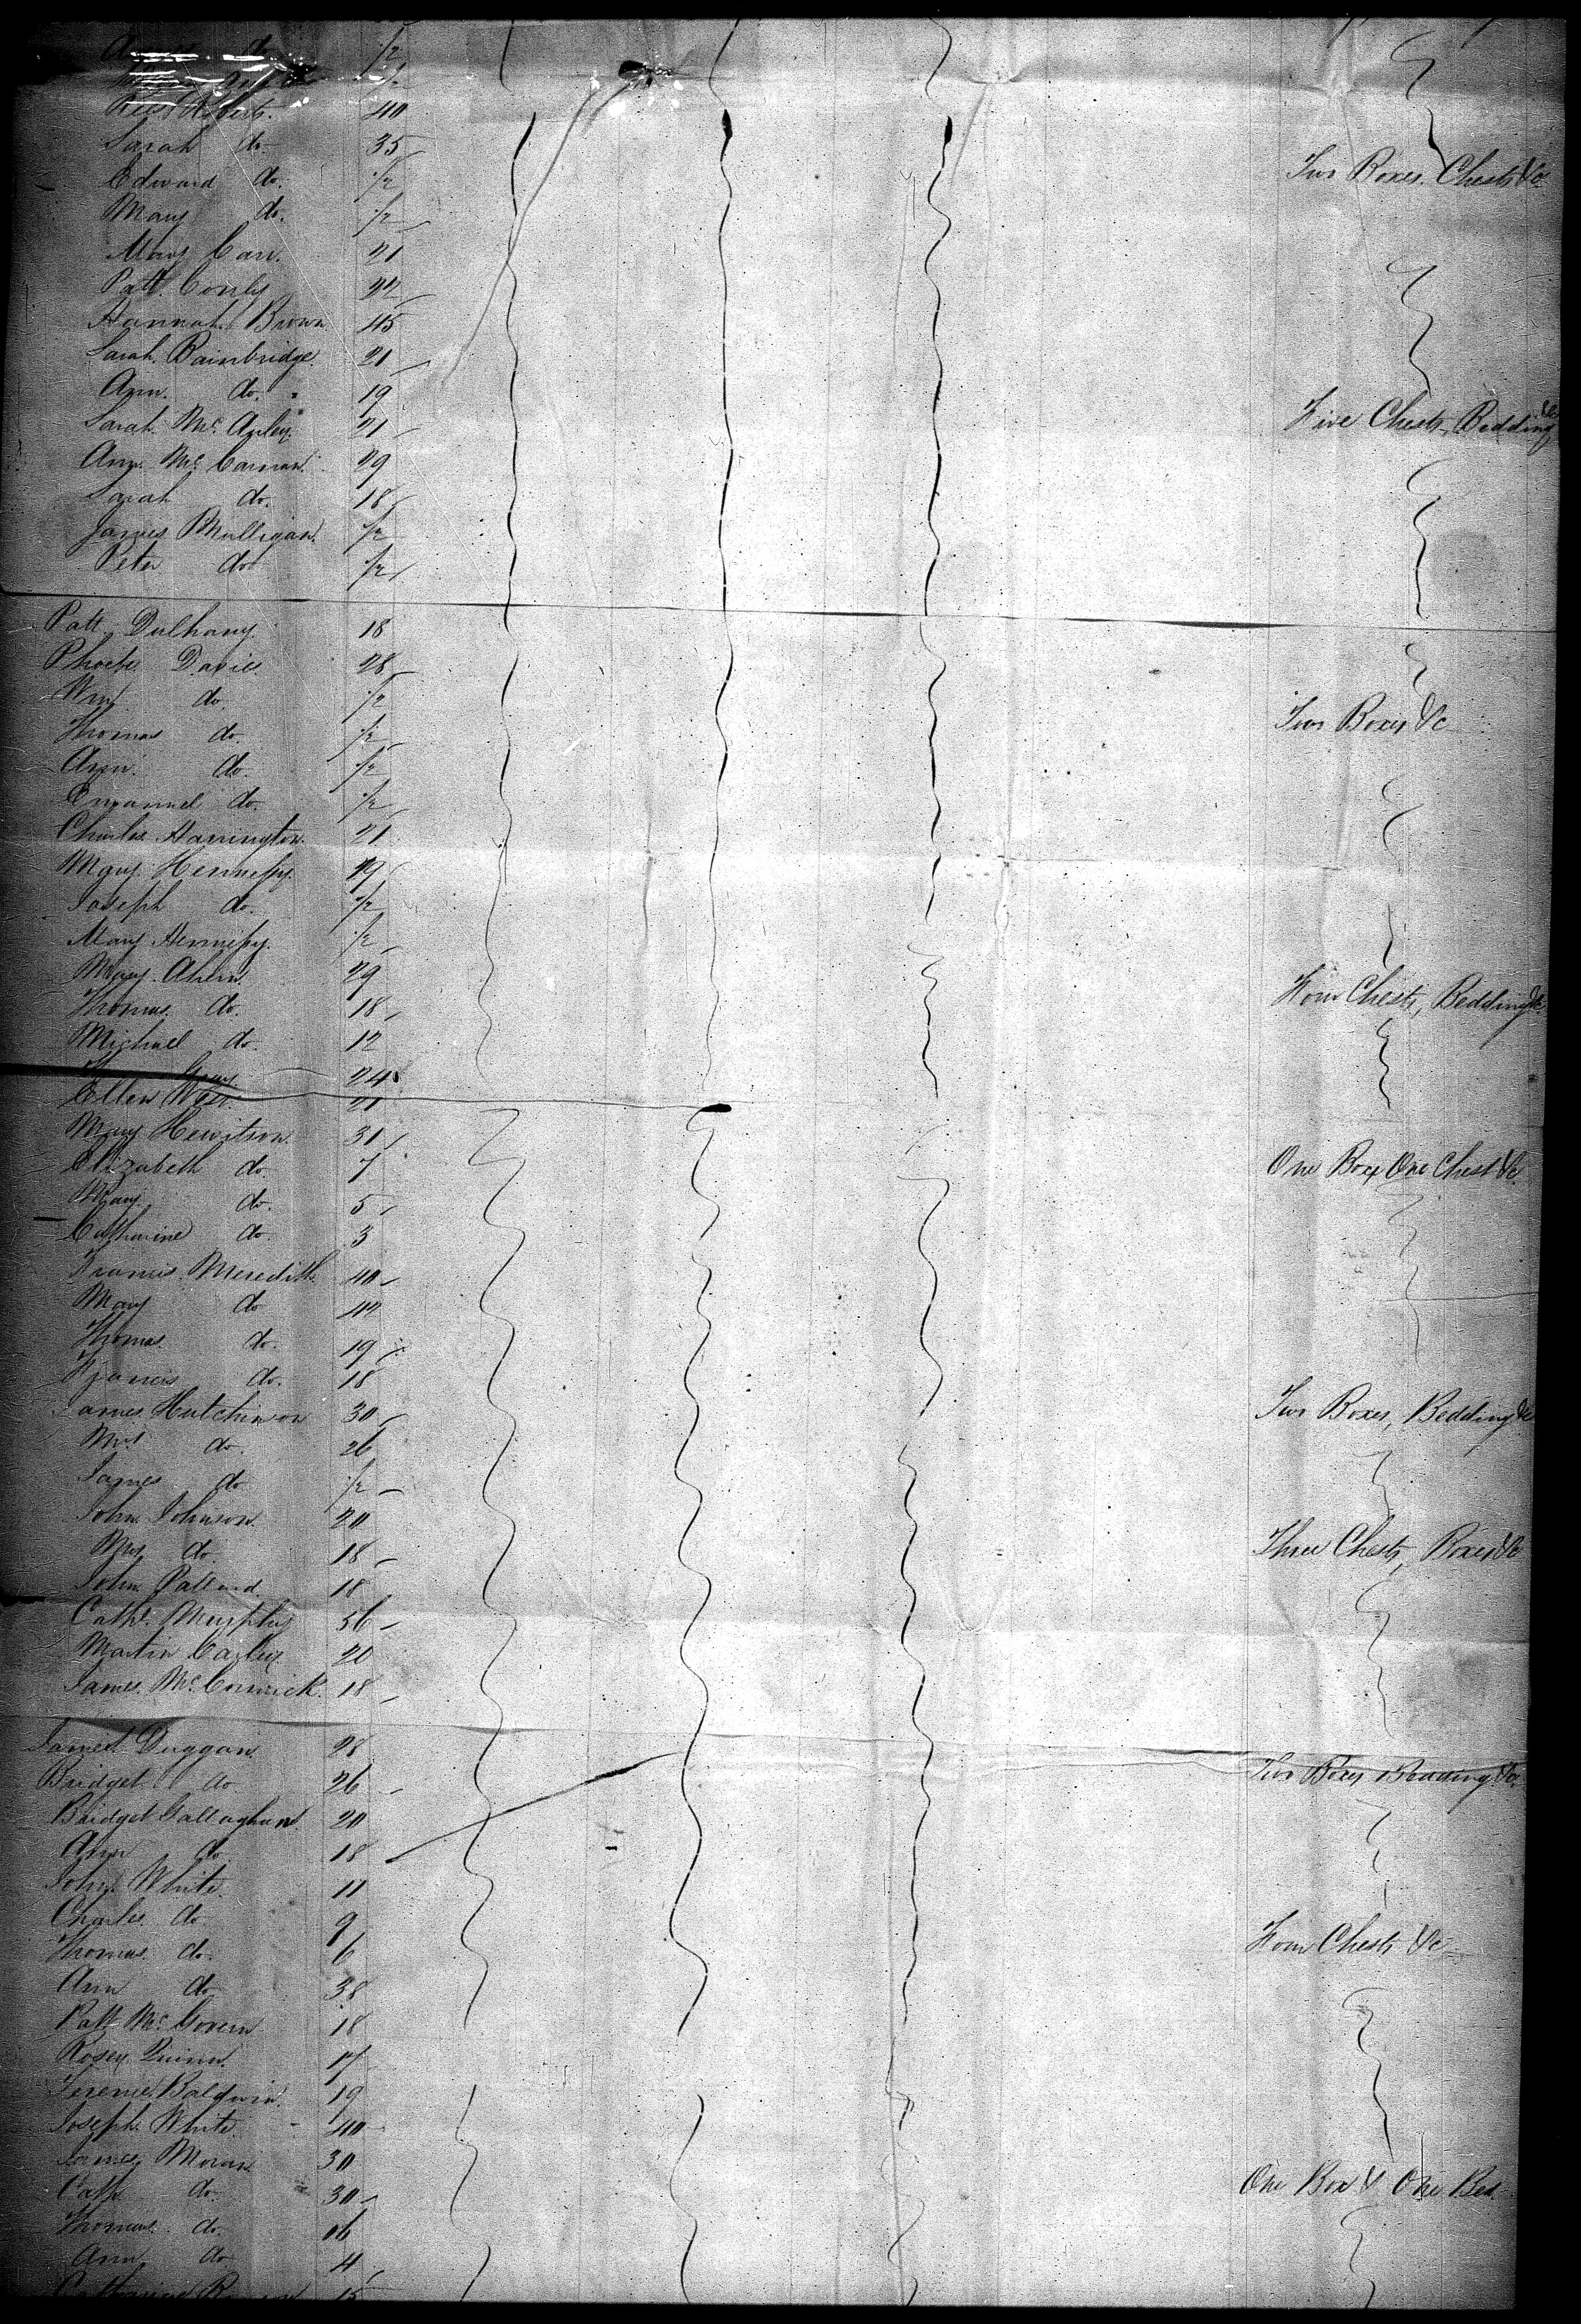 do. 1/2
1/2
Rees Roberts. 40
Sarah do. 35
Edward do. 1/2 Two Boxes. Chests &c
Mary do. 1/2
Mary Carr. 21
Patt. Conly 22
Hannah Brown 45
Sarah. Bainbridge. 21
Ann. do. 19
Sarah Mc 21 Five Chests, Bedding &c
Ann Mc 29
Sarah do. 18
James Mulligan. 1/2
Peter do 1/2
Patt Dulhany. 18
Phoebe Davies 28
Wm do. 1/2 Two Boxes &c
Thomas do. 1/2
Ann. do. 1/2
Emanuel do. 1/2
Charles Harrington. 21
Mary Hennessy. 29
Joseph do. 1/2
Mary Hennessy. 1/2
Mary Ahern. 29 Four Chests, Bedding &c
Thomas. do. 18
Michael do. 12
Gray 24
Ellen 21
Mary Hewitson 31
Elizabeth do. 7 One Box One Chest &c
Mary do. 5
Catharine do. 3
Francis Meredith 40
Mary do 42
Thomas. do. 19
Francis do. 18
James Hutchinson 30 Two Boxes, Bedding &c
Mrs do. 26
James do 1/2
John Johnson. 20
Mrs do. 18 Three Chests, Boxes &c
John Pallard 18
Cathe. Murphy 36
Martin 20
James. Mc Cormick. 18
James Duggan 28
Bridget do 26 Two Boxes Bedding &c
Bridget Gallaghan 20
Ann do. 18
John White. 11
Charles do 9
Thomas. do. 6 Four Chests &c
Ann do 38
Patt Mc Govern 18
Rosey Quinn. 17
Baldwin. 19
Joseph White. 40
James Moran 30
Cath do. 30 One Box & One Bed.
Thomas. do. 06
Ann do 4
Catharine 15